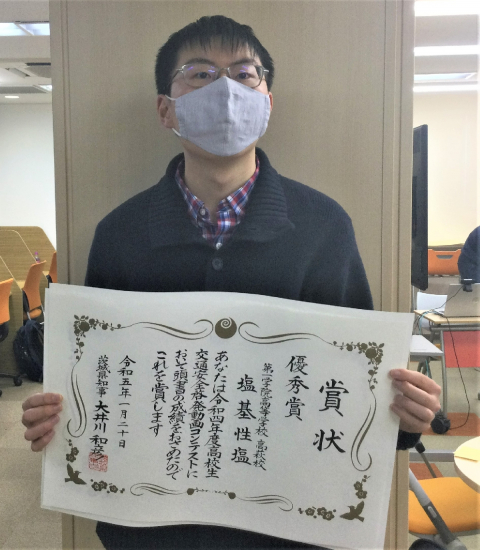 賞状
優秀賞
第一学院高等学校 高萩校
塩基性塩
あなたは令和四年度高校生
交通安全啓発動画コンテストに
おいて頭書の成績をおさめたので
これを賞します
令和五年一月二十日
茨城県知事 大井川和彦